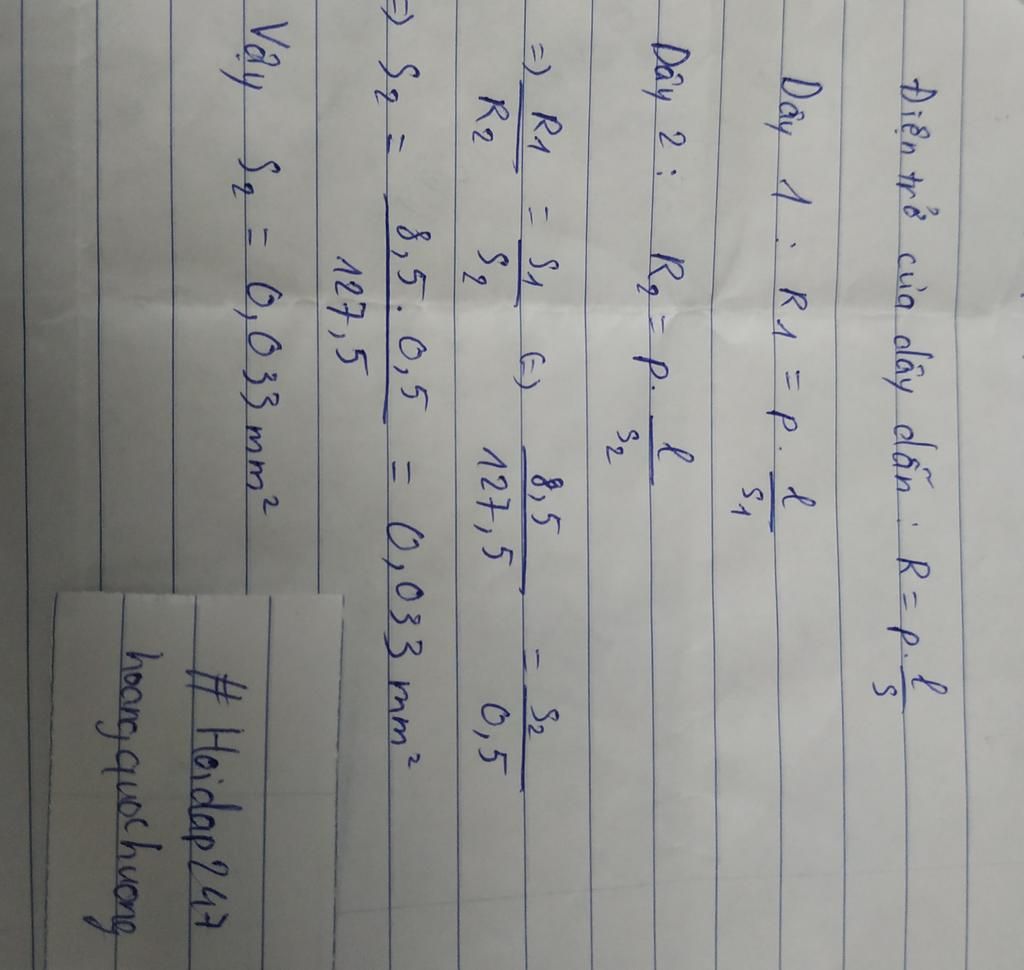 Điện trở của dây dẫn : R = p. l/S
Dây 1 : R1 = p. l/S1
Dây 2 : R2 = p. l/S2
=) R1/R2 = S1/S2 (=) 8,5/127,5 = S2/0,5
=) S2 = 8,5.0,5/127,5 = 0,033 mm²
Vậy S2 = 0,033 mm²
# Hoidap247
hoangquochuong